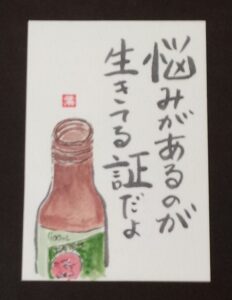 悩みがあるのが
生きてる証だよ